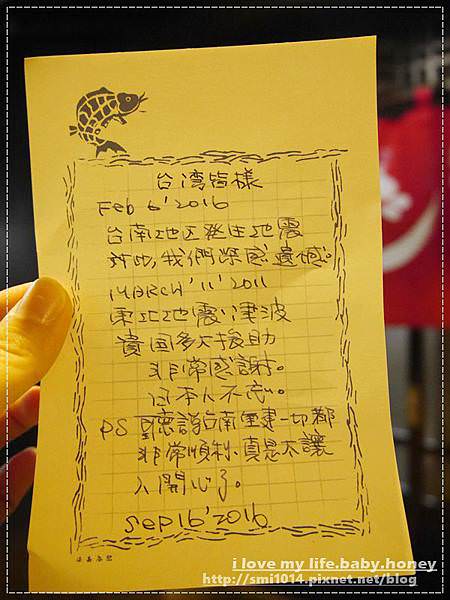 台湾皆様
Feb 6'2016
台南地区発生地震
対此,我們深感遺憾。
MARCH'11'2011
東北地震、津波
貴国多大援助
非常感謝。
日本人不忘。
PS 聽說台南重建一切都
非常順利、真是太讓
人開心了。
Sep16'2016
i love my life.baby.honey
http://smi1014.pixnet.net/blog